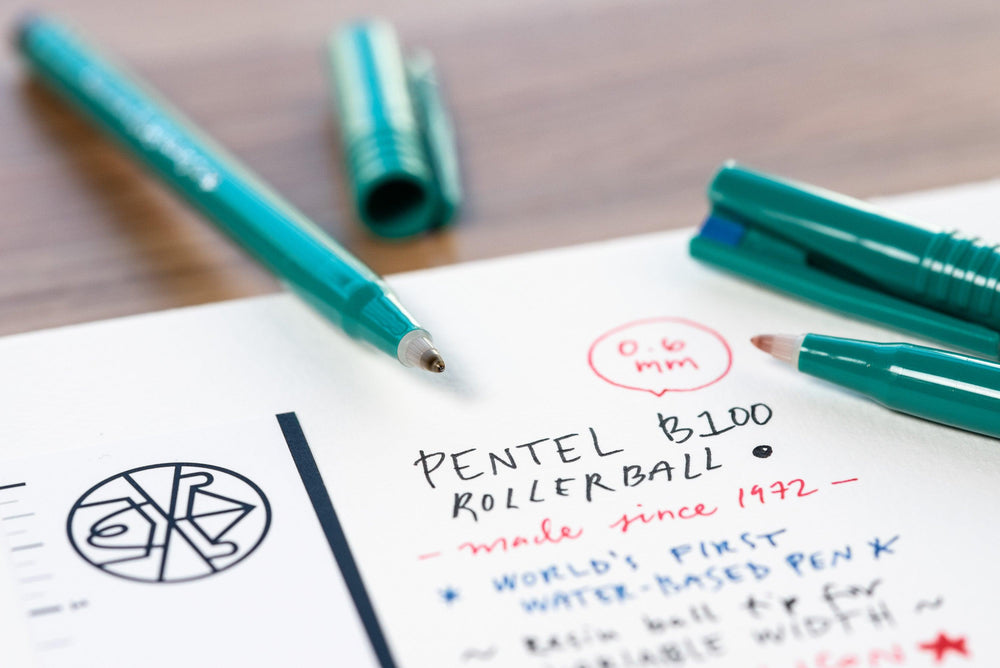 0.6
mm
PENTEL B100
ROLLERBALL •
- made since 1972 -
* WORLD'S FIRST
WATER-BASED PEN *
~ Resin ball tip for
VARIABLE WIDTH ~